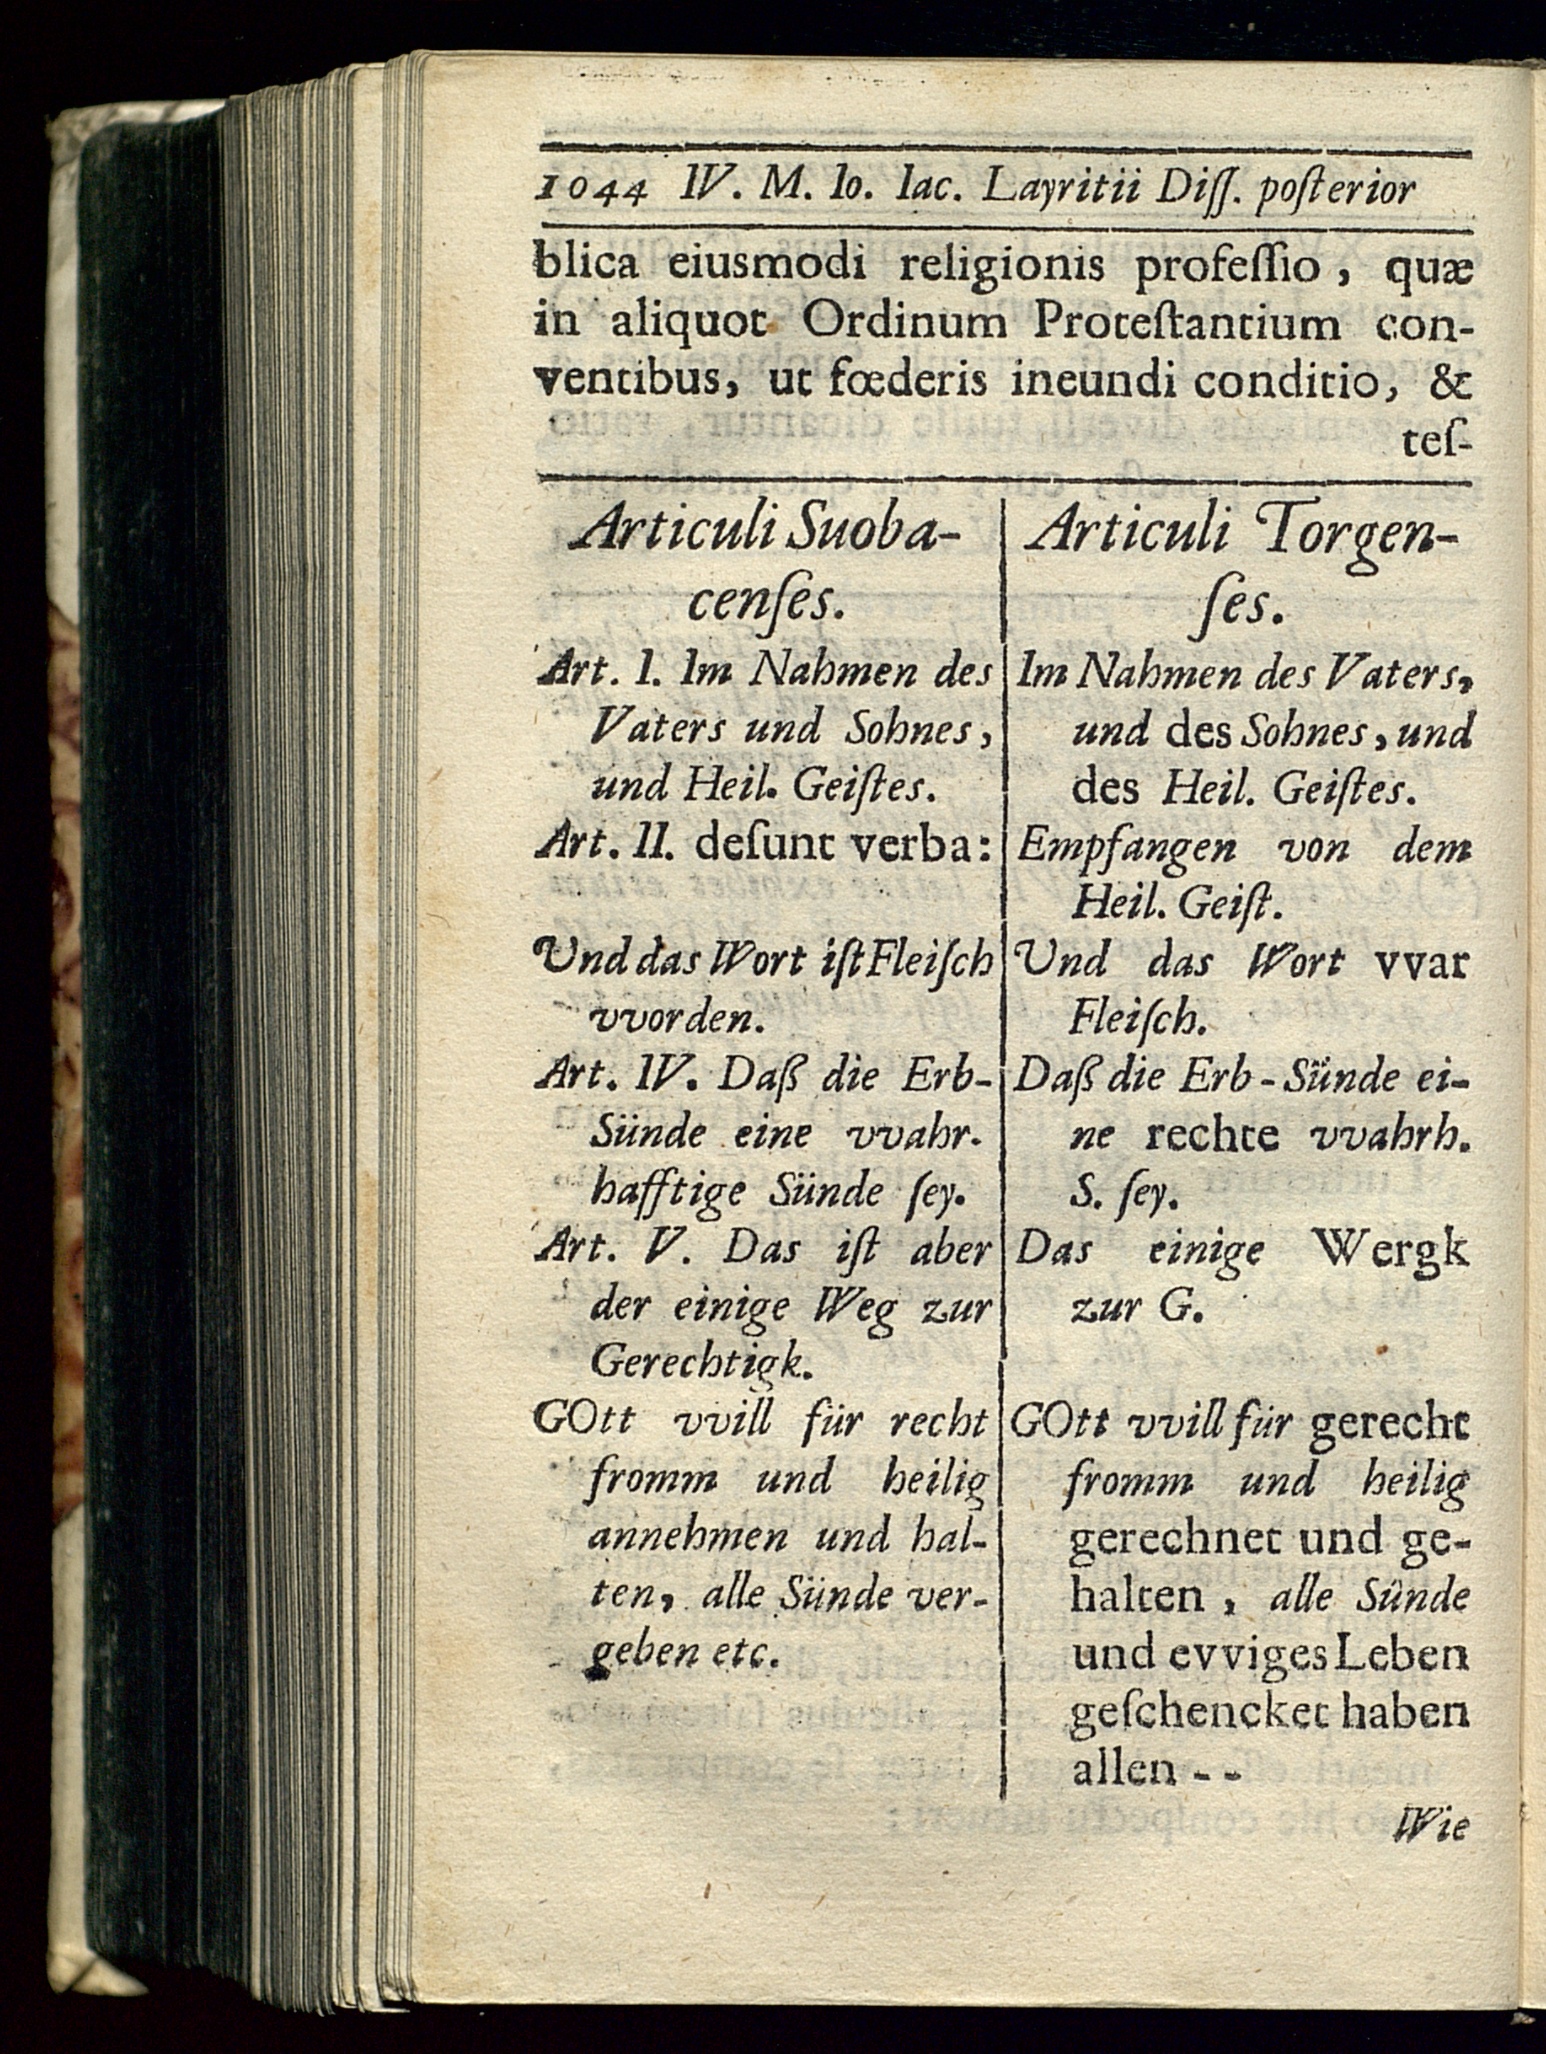 1044 IV. M. Io. Iac. Layritii Diſſ. poſterior
blica eiusmodi religionis profeſſio, quæ
in aliquot Ordinum Proteſtantium con-
ventibus, ut fœderis ineundi conditio, &
teſ-
Articuli Suoba-
cenſes.
Art. I. Im Nahmen des
Vaters und Sohnes,
und Heil. Geiſtes.
Art. II. deſunt verba:
Und das Wort iſt Fleiſch
vvorden.
Art. IV. Daß die Erb-
Sünde eine vvahr-
hafftige Sünde ſey.
Art. V. Das iſt aber
der einige Weg zur
Gerechtigk.
GOtt vvill für recht
fromm und heilig
annehmen und hal-
ten, alle Sünde ver-
geben etc.
Articuli Torgen-
ſes.
Im Nahmen des Vaters,
und des Sohnes, und
des Heil. Geiſtes.
Empfangen von dem
Heil. Geiſt.
Und das Wort vvar
Fleiſch.
Daß die Erb-Sünde ei-
ne rechte vvahrh.
S. ſey.
Das einige Wergk
zur G.
GOtt vvill für gerecht
fromm und heilig
gerechnet und ge-
halten, alle Sünde
und evviges Leben
geſchencket haben
allen - -
Wie